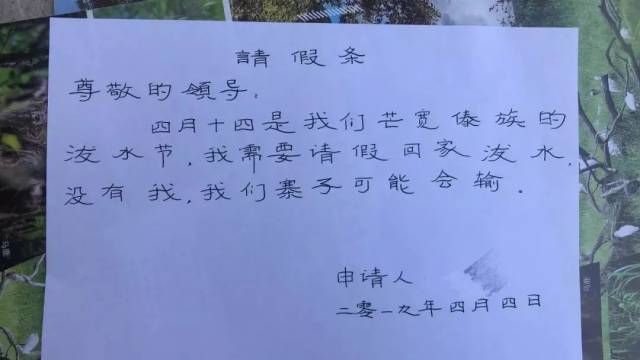 請假条
尊敬的領导:
四月十四是我们芒宽傣族的
泼水节,我需要请假回家泼水,
没有我,我们寨子可能会输.
申请人
二零一九年四月四日